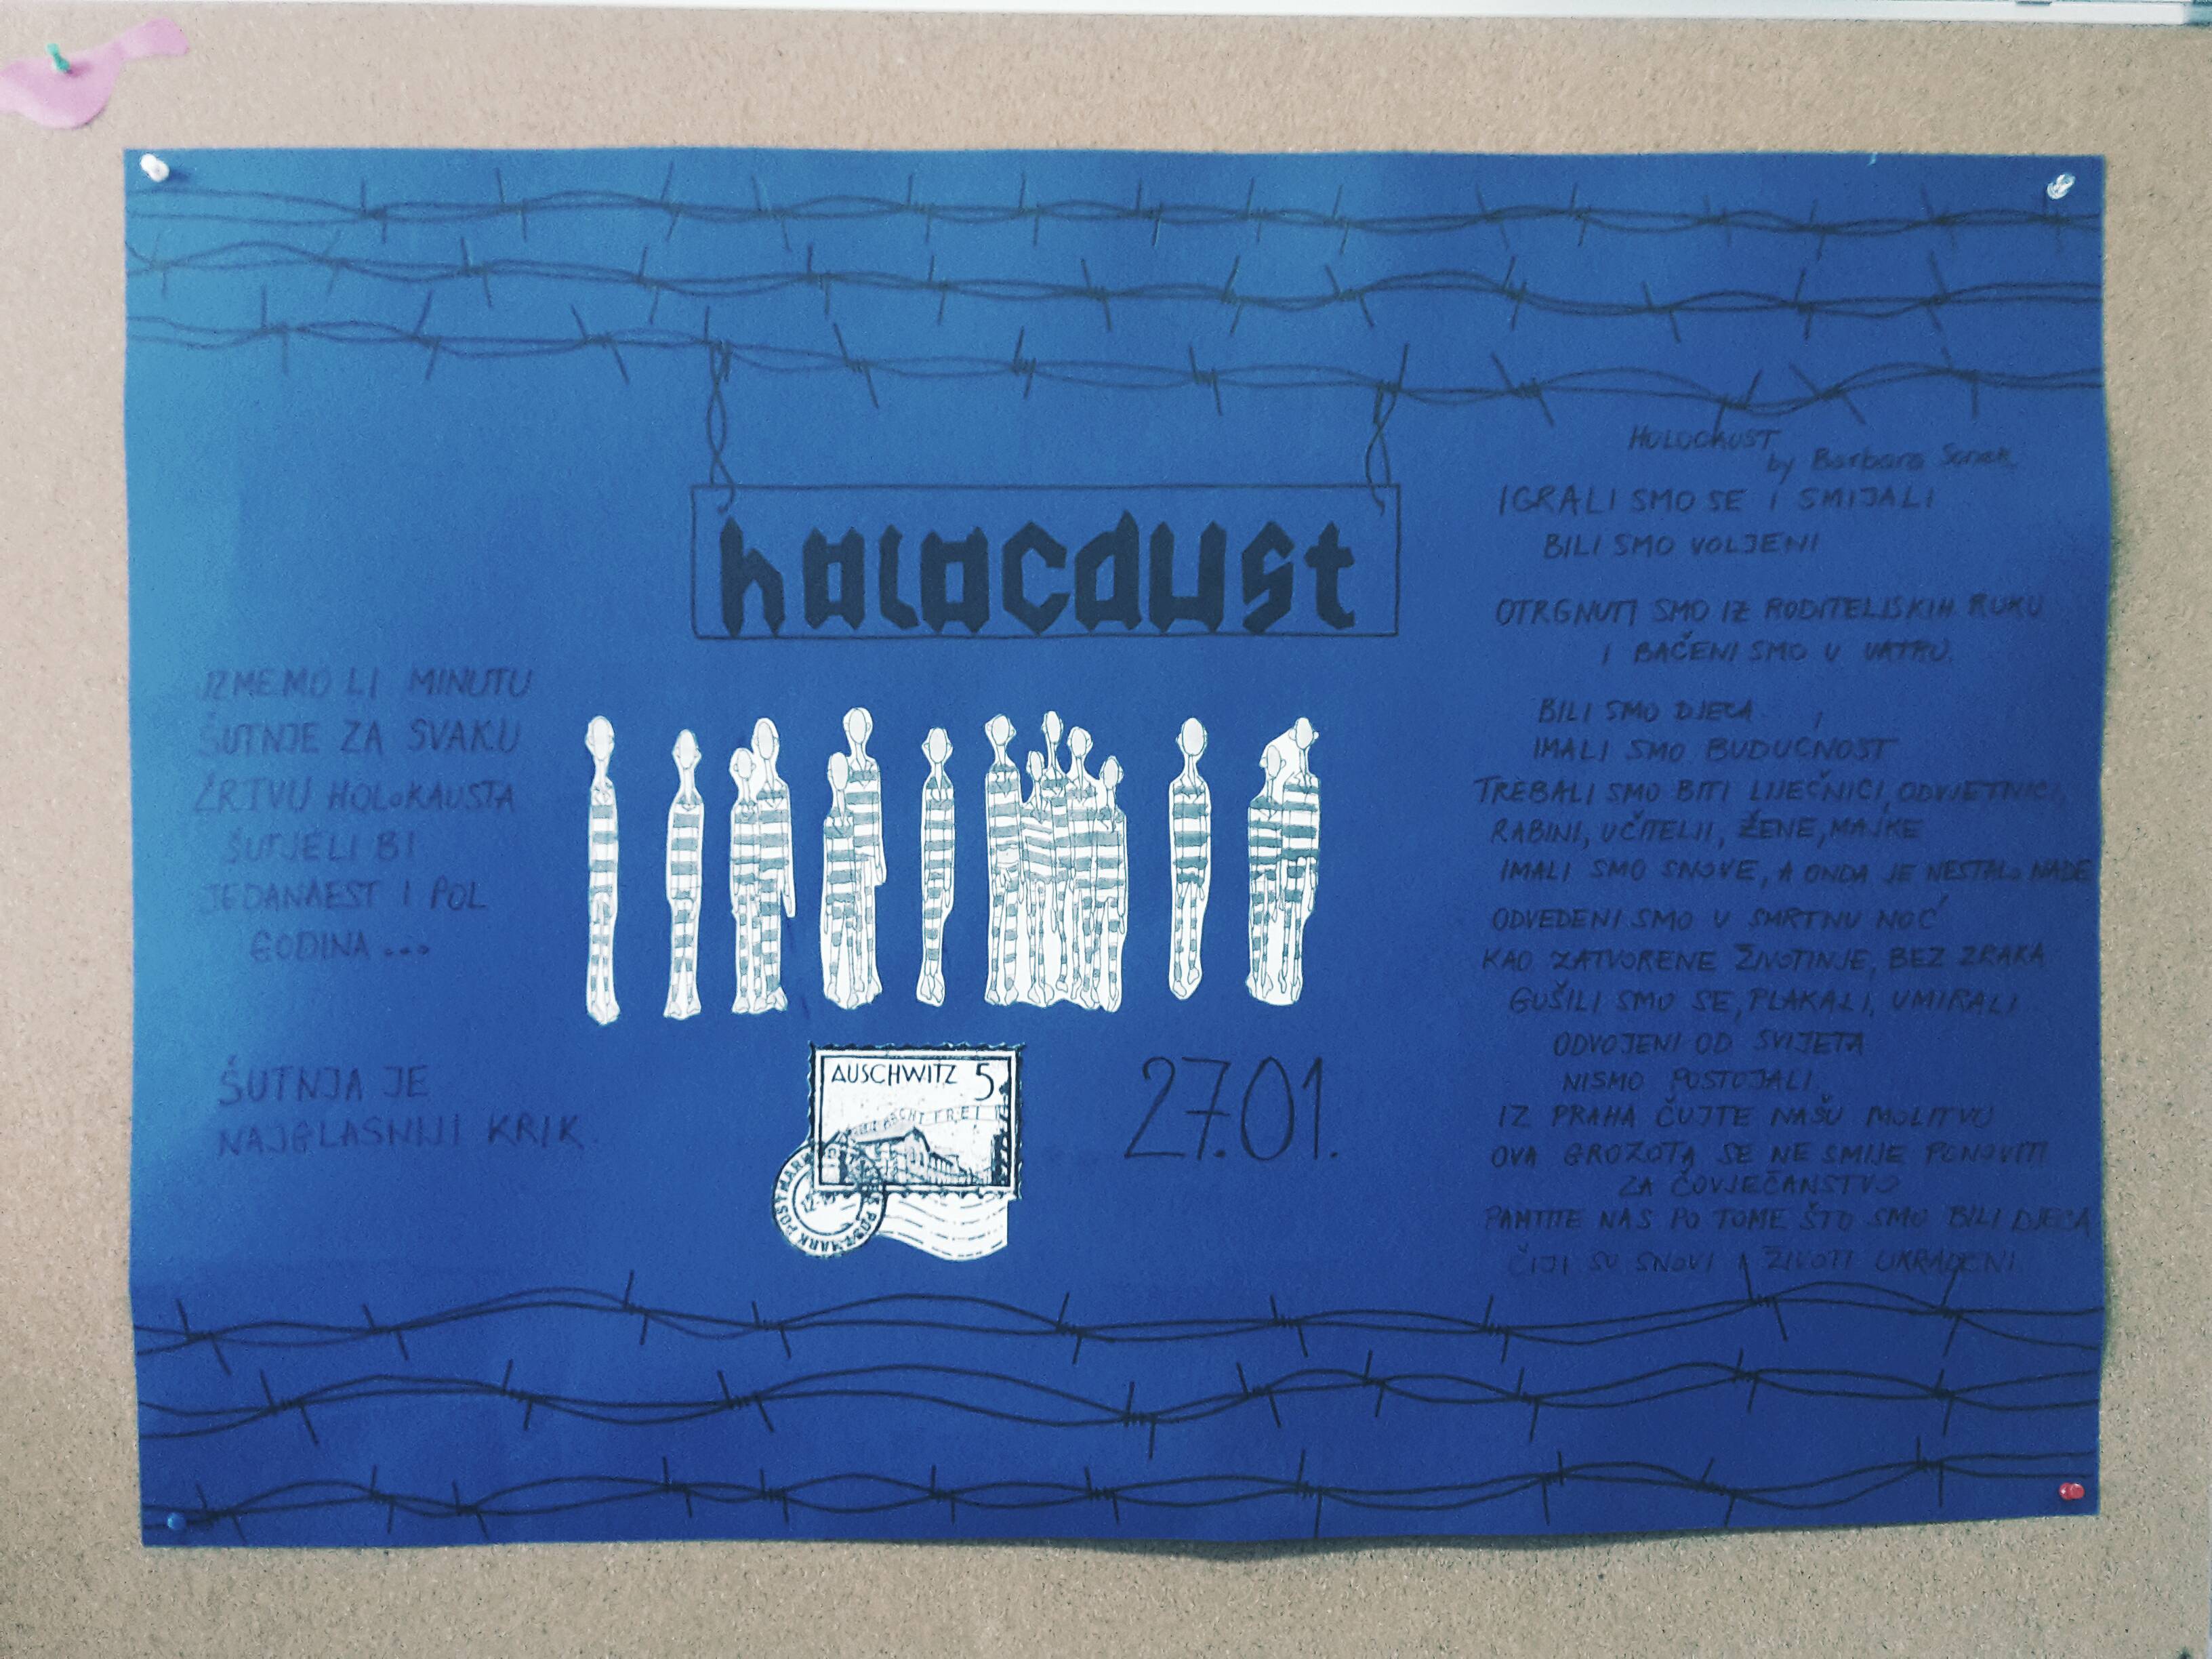 holocaust
IZMEMO LI MINUTU
ŠUTNJE ZA SVAKU
ŽRTVU HOLOKAUSTA
ŠUTJELI BI
JEDANAEST I POL
GODINA...
ŠUTNJA JE
NAJGLASNIJI KRIK.
AUSCHWITZ 5
POSTMARK
27.01.
HOLOCAUST
by Barbara Sonek
IGRALI SMO SE I SMIJALI
BILI SMO VOLJENI
OTRGNUTI SMO IZ RODITELJSKIH RUKU
I BAČENI SMO U VATRU.
BILI SMO DJECA
IMALI SMO BUDUĆNOST
TREBALI SMO BITI LIJEČNICI, ODVJETNICI,
RABINI, UČITELJI, ŽENE, MAJKE
IMALI SMO SNOVE, A ONDA JE NESTALO NADE
ODVEDENI SMO U SMRTNU NOĆ
KAO ZATVORENE ŽIVOTINJE, BEZ ZRAKA
GUŠILI SMO SE, PLAKALI, UMIRALI
ODVOJENI OD SVIJETA
NISMO POSTOJALI.
IZ PRAHA ČUJTE NAŠU MOLITVU
OVA GROZOTA SE NE SMIJE PONOVITI
ZA ČOVJEČANSTVO
PAMTITE NAS PO TOME ŠTO SMO BILI DJECA
ČIJI SU SNOVI I ŽIVOTI UKRADENI